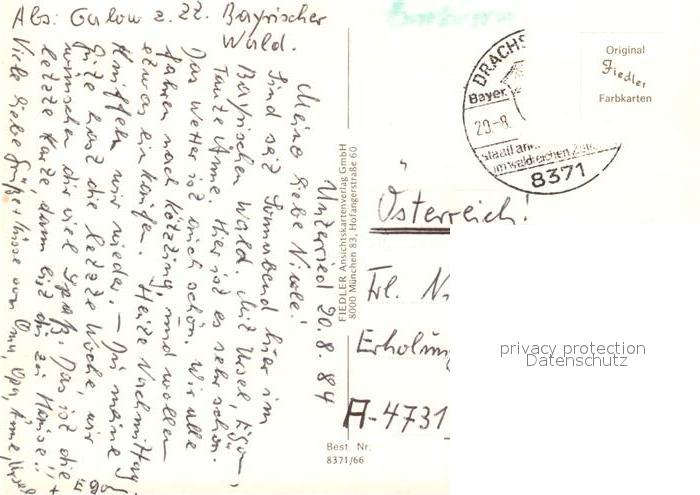 Abs: Gulow z. Zt. Bayrischer
Wald.
Unterried 20. 8. 84
Meine liebe Nicole!
Sind seit Sonnabend hier im
Bayrischen Wald. Mit Ursel, Egon,
Tante Anne. Hier ist es sehr schön.
Das Wetter ist auch schön. Wir alle
fahren nach Kötzting, und wollen
etwas einkaufen. Heute Nachmittag
kniffeln wir wieder. — Du meine
Güte hast die letzte Woche, wir
wünschen dir viel Spaß. Das ist die
letzte Karte dann bist du zu Hause!!
Viele liebe Grüße + Küsse von Omi, Opa, Anne, Ursel
+ Egon
FIEDLER Ansichtskartenverlag GmbH
8000 München 83, Hofangerstraße 60
Best. Nr.
8371/66
DRACHS
Bayer.
20.-8.
staatl. an
im waldreichen
8371
Original
Fiedler
Farbkarten
Österreich!
Frl. N
Erholung
A-4731
privacy protection
Datenschutz